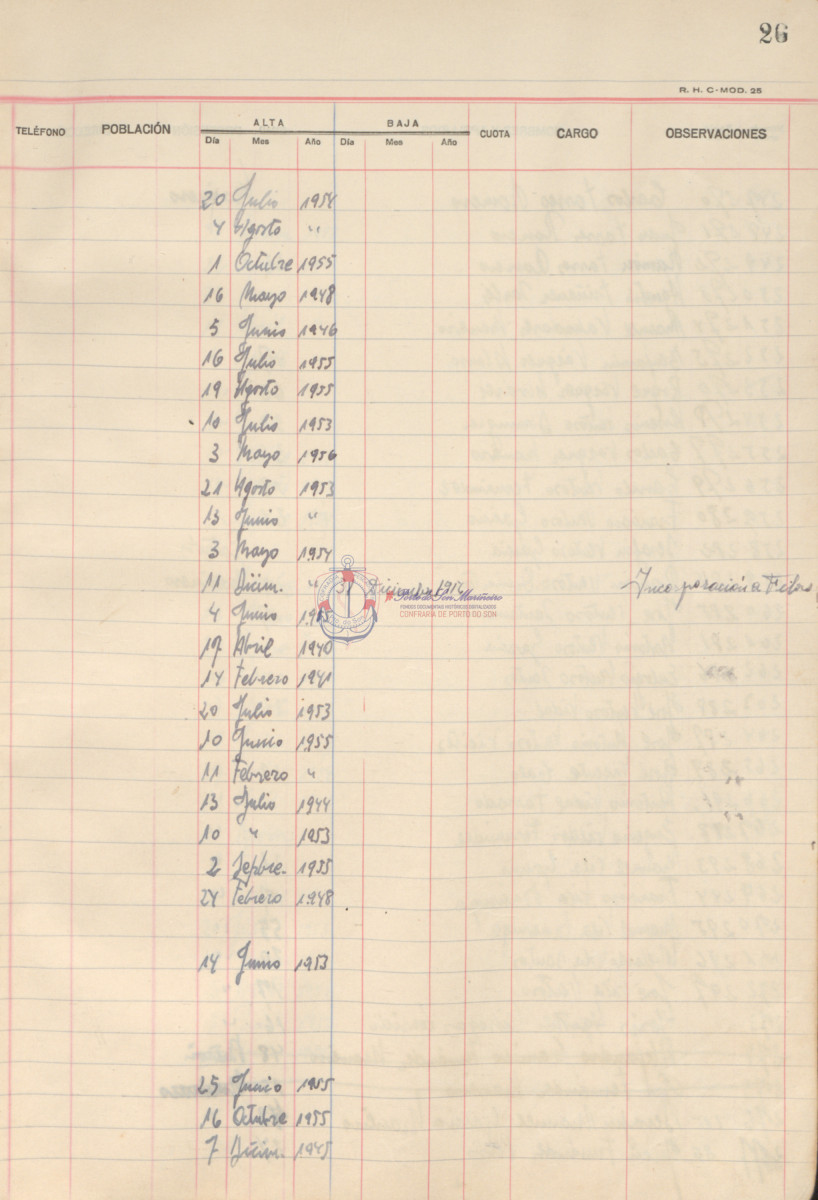 26
R. H. C-MOD. 25
TELÉFONO POBLACIÓN ALTA BAJA CUOTA CARGO OBSERVACIONES
Día Mes Año Día Mes Año
20 Julio 1954
4 Agosto "
1 Octubre 1955
16 Mayo 1948
5 Junio 1946
16 Julio 1955
19 Agosto 1955
10 Julio 1953
3 Mayo 1956
21 Agosto 1953
13 Junio "
3 Mayo 1954
11 Dicim. " 31 Diciembre Incorporación a Filas
Porto do Son Mariñeiro
FONDOS DOCUMENTAIS HISTÓRICOS DIXITALIZADOS
CONFRARÍA DE PORTO DO SON
4 Junio 1955
17 Abril 1940
14 Febrero 1941
20 Julio 1953
10 Junio 1955
11 Febrero "
13 Julio 1944
10 " 1953
2 Sepbre. 1955
24 Febrero 1948
14 Junio 1953
25 Junio 1955
16 Octubre 1955
7 Dicim. 1945